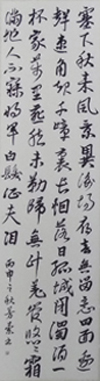 塞下秋来風景異衡陽雁去無留意四面邊
聲連角起千嶂裏長煙落日孤城閉濁酒一
杯家萬里燕然未勒歸無計羌管悠悠霜
滿地人不寐將軍白髮征夫淚
丙申之秋